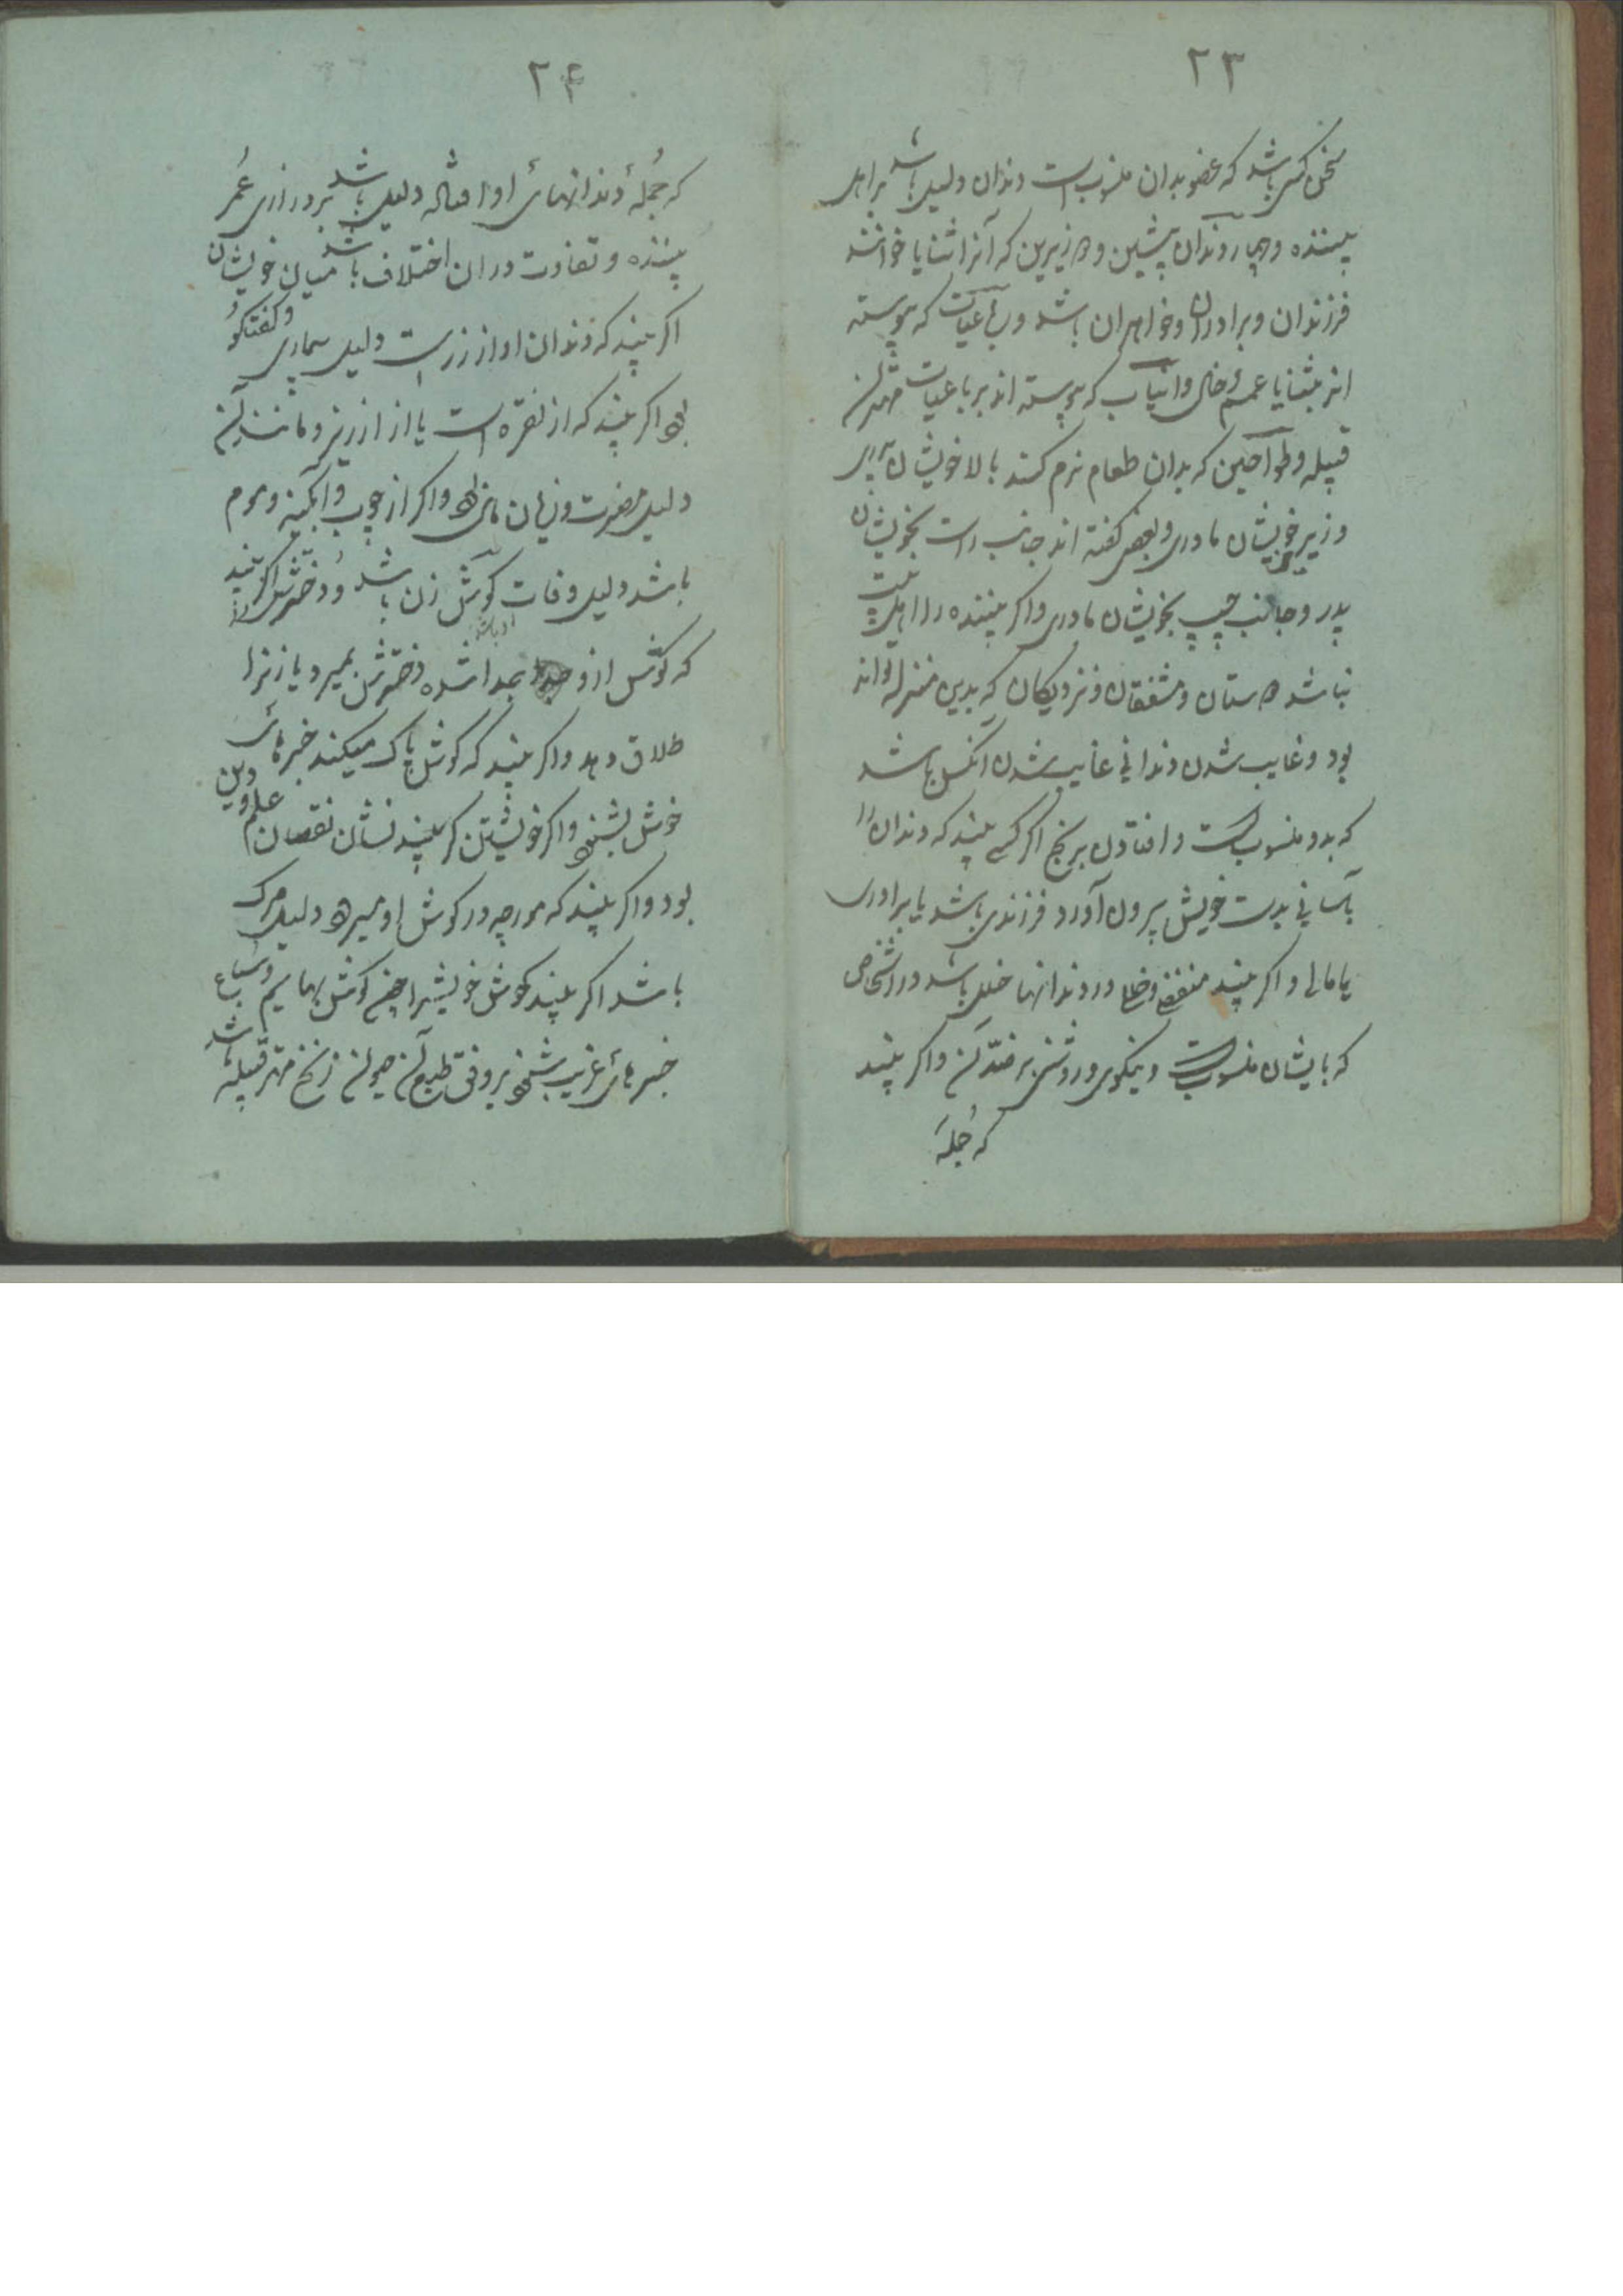 ۲۳
سخن کسی باشد که عضو بدان منسوب است دندان دلیل باشد بر اهل
بیننده و چهار دندان پیشین و زیرین که آنرا ثنایا خوانند
فرزندان و برادران و خواهران باشد و رباعیات که پیوسته
اند بثنایا عم و خال و انیاب که پیوسته اند برباعیات مهتران
قبیله و طواحین که بدان طعام نرم کنند بالا خویشان پدری
و زیر خویشان مادری و بعضی گفته اند جانب راست بخویشان
پدر و جانب چپ بخویشان مادری و اگر بیننده را اهل بیت
نباشد دوستان و مشفقان و نزدیکان که بدین منزله اند
بود و غایب شدن دندانی غایب شدن آنکس باشد
که بدو منسوبست و افتادن برنج اگر کسی بیند که دندان را
بآسانی بدست خویش بیرون آورد فرزندی باشد یا برادری
یا مالی و اگر بیند در دندانها خلل باشد در اشخاص
که بایشان منسوبست و نیکوی و روشنی بر ضد آن و اگر بیند
که جمله
۲۴
که جمله دندانهای او افتاده دلیل باشد بر درازی عمر
بیننده و تفاوت در آن اختلاف باشد میان خویشان
اگر بیند که دندان او از زر است دلیل بیماری و گفتگو
بود اگر بیند که از نقره است یا از ارزیز و مانند آن
دلیل مضرت و زیان مالی بود و اگر از چوب و آبگینه و موم
باشد دلیل وفات گوش زن باشد و دخترش اگر بیند
که گوش از و جدا شده دخترش بمیرد یا زنرا
طلاق دهد و اگر بیند که گوش پاک میکند خبرهای
خوش بشنود و اگر خویشتن کر بیند نشان نقصان علم و دین
بود و اگر بیند که مورچه در گوش او میرود دلیل مرگ
باشد اگر بیند گوش خویش را چون گوش بهایم و سباع
خبرهای غریب بشنود بر وفق طبع آن حیوان زنخ مهتر قبیله باشد